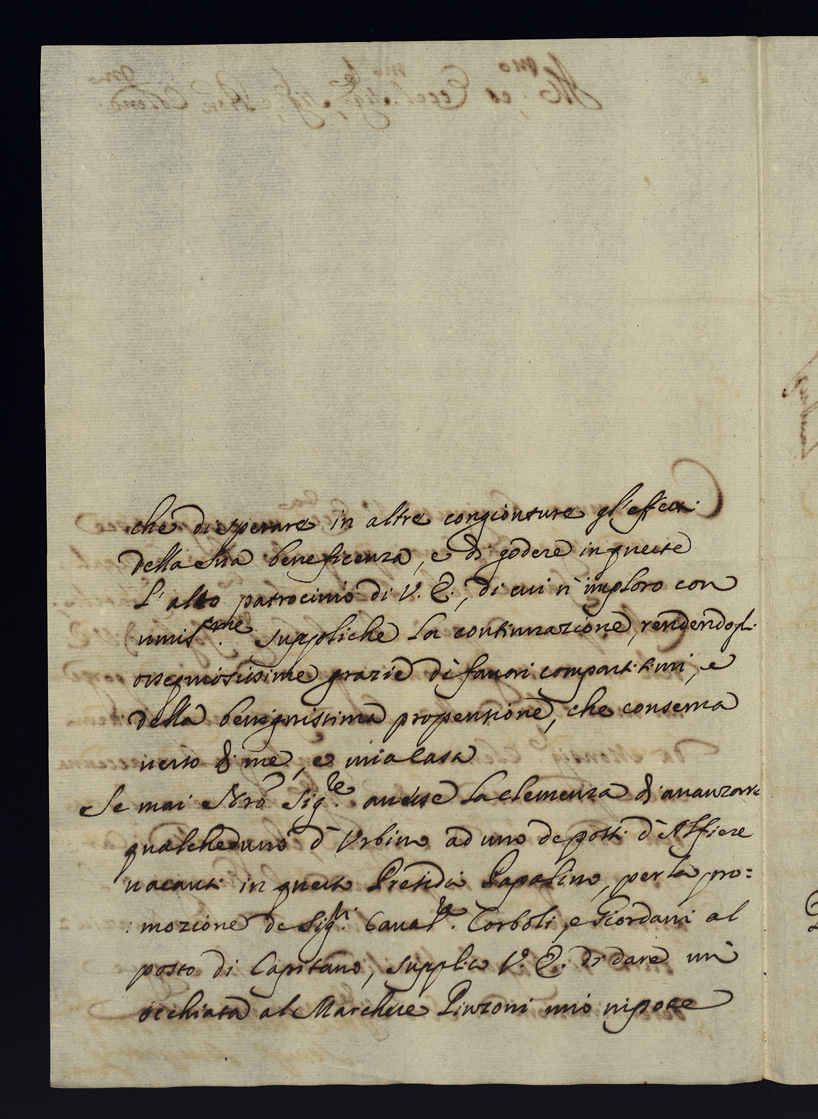 che di sperare in altre congionture gl'effetti
della sua beneficenza, e di godere in queste
L'alto patrocinio di V. E., di cui n'imploro con
umis.me suppliche la continuazione, rendendogli
ossequiosissime grazie de favori compartitimi, e
della benignissima propensione, che conserva
verso di me, e mia casa
Se mai Nro Sig.re auesse la clemenza di auanzare
qualcheduno d'Urbino ad uno de posti d'Alfiere
uacanti in questo Presidio Papalino, per la pro=
:mozione de Sig.ri Caual.ri Corboli, e Giordani al
posto di Capitano, supplico V. E. di dare un'
occhiata al Marchese Pinzoni mio nipote